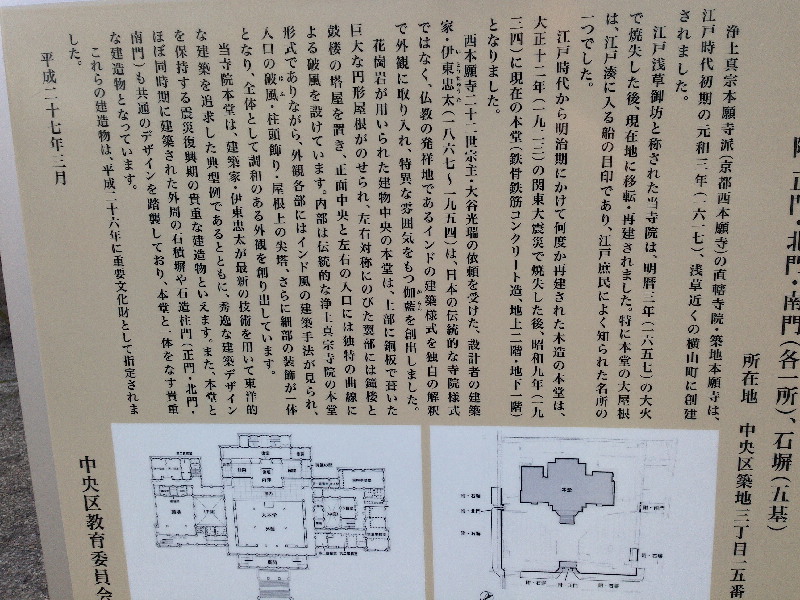 正門・北門・南門(各一所)、石塀(五基)
所在地　中央区築地三丁目一五番
浄土真宗本願寺派(京都西本願寺)の直轄寺院・築地本願寺は、
江戸時代初期の元和三年(一六一七)、浅草近くの横山町に創建
されました。
江戸浅草御坊と称された当寺院は、明暦三年(一六五七)の大火
で焼失した後、現在地に移転・再建されました。特に本堂の大屋根
は、江戸湊に入る船の目印であり、江戸庶民によく知られた名所の
一つでした。
江戸時代から明治期にかけて何度か再建された木造の本堂は、
大正十二年(一九二三)の関東大震災で焼失した後、昭和九年(一九
三四)に現在の本堂(鉄骨鉄筋コンクリート造、地上二階・地下一階)
となりました。
西本願寺二十二世宗主・大谷光瑞の依頼を受けた、設計者の建築
家・伊東忠太(一八六七～一九五四)は、日本の伝統的な寺院様式
ではなく、仏教の発祥地であるインドの建築様式を独自の解釈
で外観に取り入れ、特異な雰囲気をもつ伽藍を創出しました。
花崗岩が用いられた建物中央の本堂は、上部に銅板で葺いた
巨大な円形屋根がのせられ、左右対称にのびた翼部には鐘楼と
鼓楼の塔屋を置き、正面中央と左右の入口には独特の曲線に
よる破風を設けています。内部は伝統的な浄土真宗寺院の本堂
形式でありながら、外観各部にはインド風の建築手法が見られ、
入口の破風・柱頭飾り・屋根上の尖塔、さらに細部の装飾が一体
となり、全体として調和のある外観を創り出しています。
当寺院本堂は、建築家・伊東忠太が最新の技術を用いて東洋的
な建築を追求した典型例であるとともに、秀逸な建築デザイン
を保持する震災復興期の貴重な建造物といえます。また、本堂と
ほぼ同時期に建築された外周の石積塀や石造柱門(正門・北門・
南門)も共通のデザインを踏襲しており、本堂と一体をなす貴重
な建造物となっています。
これらの建造物は、平成二十六年に重要文化財として指定されま
した。
平成二十七年三月
中央区教育委員会
本堂